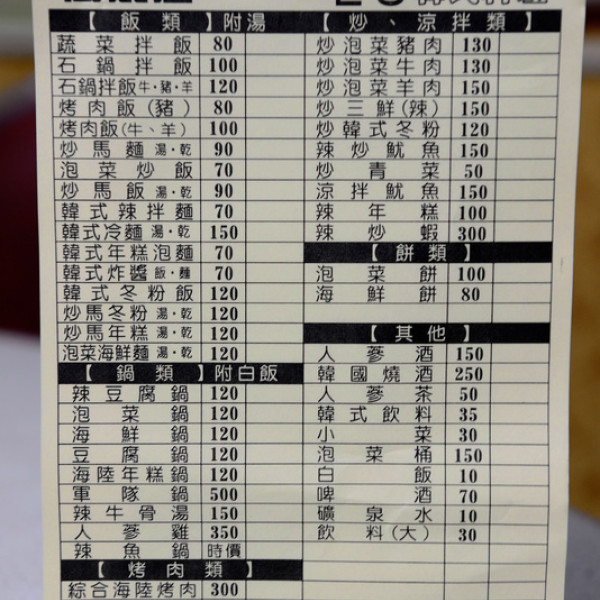 【飯類】附湯
蔬菜拌飯 80
石鍋拌飯 100
石鍋拌飯牛·豬·羊 120
烤肉飯(豬) 80
烤肉飯(牛、羊) 100
炒馬麵 湯·乾 90
泡菜炒飯 70
炒馬飯 湯·乾 90
韓式辣拌麵 70
韓式冷麵 湯·乾 150
韓式年糕泡麵 70
韓式炸醬 飯·麵 70
韓式冬粉飯 120
炒馬冬粉 湯·乾 120
炒馬年糕 湯·乾 120
泡菜海鮮麵 湯·乾 120
【鍋類】附白飯
辣豆腐鍋 120
泡菜鍋 120
海鮮鍋 120
豆腐鍋 120
海陸年糕鍋 120
軍隊鍋 500
辣牛骨湯 150
人蔘雞 350
辣魚鍋 時價
【烤肉類】
綜合海陸烤肉 300
【炒、涼拌類】
炒泡菜豬肉 130
炒泡菜牛肉 130
炒泡菜羊肉 150
炒三鮮(辣) 150
炒韓式冬粉 120
辣炒魷魚 150
炒青菜 50
涼拌魷魚 150
辣年糕 100
辣炒蝦 300
【餅類】
泡菜餅 100
海鮮餅 80
【其他】
人蔘酒 150
韓國燒酒 250
人蔘茶 50
韓式飲料 35
小菜 30
泡菜桶 150
白飯 10
啤酒 70
礦泉水 10
飲料(大) 30